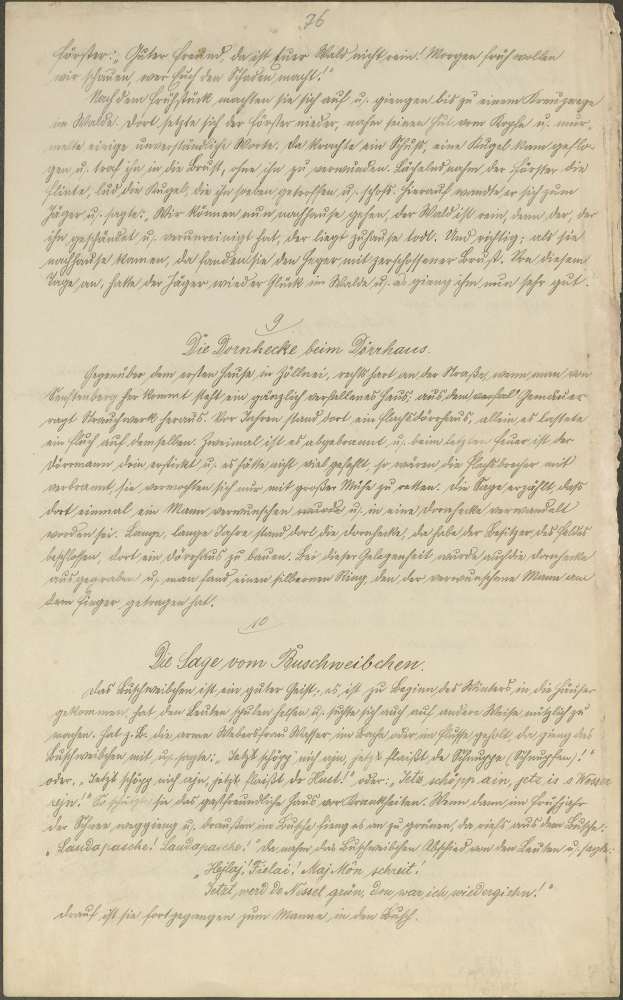 76
Förster: „Guter Freund, da ist Euer Wald nicht rein! Morgen früh wollen
wir schauen, wer Euch den Schaden macht."
Nach dem Frühstück machten sie sich auf u. giengen bis zu einem Kreuzwege
im Walde. Dort setzte sich der Förster nieder, nahm seinen Hut vom Kopfe u. mur-
melte einige unverständliche Worte. Da krachte ein Schuß, eine Kugel kam geflo-
gen u. traf ihn in die Brust, ohne ihn zu verwunden. Lächelnd nahm der Förster die
Flinte, lud die Kugel, die ihn soeben getroffen, u. schoß. Hierauf wandte er sich zum
Jäger u. sagte: „Wir können nun nachhause gehen, der Wald ist rein, denn der, der
ihn geschändet u. verunreinigt hat, der liegt zuhause todt. Und richtig; als sie
nachhause kamen, da fanden sie den Heger mit zerschossener Brust. Von diesem
Tage an, hatte der Jäger wieder Glück im Walde u. es gieng ihm nun sehr gut.
9
Die Dornhecke beim Dörrhaus.
Gegenüber dem ersten Hause in Höllnei, rechts hart an der Straße, wenn man von
Senftenberg her kommt steht ein gänzlich verfallenes Haus; aus dem Gemäuer
ragt Strauchwerk heraus. Vor Jahren stand dort ein Flachsdörrhaus, allein es lastete
ein Fluch auf demselben. Zweimal ist es abgebrannt, u. beim letzten Feuer ist der
Dörrmann drin erstickt u. es hätte nicht viel gefehlt, so wären die Flachsbrecher mit
verbrannt, sie vermochten sich nur mit großer Mühe zu retten. Die Sage erzählt, daß
dort einmal ein Mann verwunschen wurde u. in eine Dornhecke verwandelt
worden sei. Lange, lange Jahre stand dort die Dornhecke, da habe der Besitzer des Feldes
beschlossen, dort ein Dörrhaus zu bauen. Bei dieser Gelegenheit wurde auch die Dornhecke
ausgegraben u. man fand einen silbernen Ring, den der verwunschene Mann an
dem Finger getragen hat.
10
Die Sage vom Buschweibchen.
Das Buschweibchen ist ein guter Geist; es ist zu Beginn des Winters in die Häuser
gekommen, hat den Leuten spulen helfen u. suchte sich auch auf andere Weise nützlich zu
machen. Hat z.B. die arme Webersfrau Wasser im Bache oder im Flusse geholt, da gieng das
Buschweibchen mit u. sagte: „Jetzt schöpp nich ajn, jetzt flaißt de Schnuppe (Schnupfen)!"
oder: „Jetzt schöpp nich ajn, jetzt flaißt de Hust!" oder: „Jetz schöpp ain, jetz is s Wosser
rein!" So schützte sie das gastfreundliche Haus vor Krankheiten. Wenn dann im Frühjahr
der Schnee weggieng u. draußen im Busche fieng es an zu grünen, da rief's aus dem Busche:
„Laudapasche! Laudapasche!" Da nahm das Buschweibchen Abschied von den Leuten u. sagte:
Maj Môn schreit!
Jetzt werd de Nessel grün, don war ich wiedergiehn!"
Drauf ist sie fortgegangen zum Manne in den Busch.